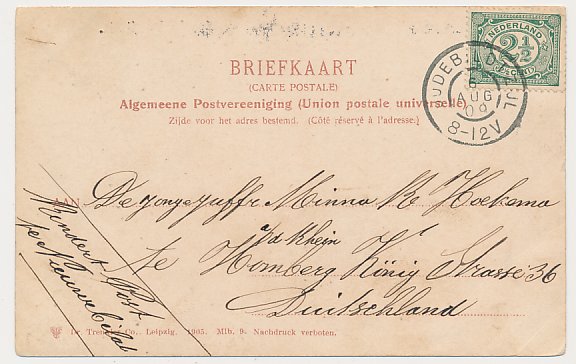 BRIEFKAART
(CARTE POSTALE)
Algemeene Postvereeniging (Union postale universelle)
Zijde voor het adres bestemd. (Côté réservé à l'adresse.)
NEDERLAND
2½
OUDEBILDTZIJL
6
AUG
09
8-12V
AAN De jongejuffr Minna K Hoekema
a/d Rhein
te Homberg König Strasse 36
Duitschland
Meindert Post
te Nieuwebildt
Dr. Trenkler Co., Leipzig. 1905. Mlb. 9. Nachdruck verboten.